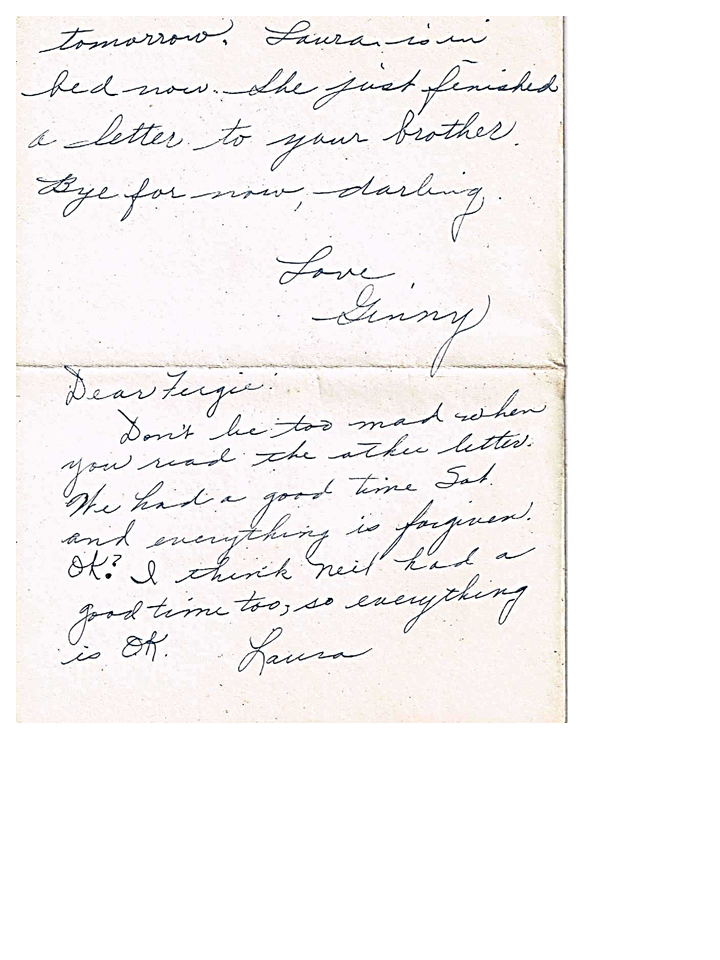 tomorrow. Laura is in
bed now. She just finished
a letter to your brother.
Bye for now, darling.
Love
Ginny
Dear Fergie:
Don't be too mad when
you read the other letter.
We had a good time Sat.
and everything is forgiven.
OK? I think Neil had a
good time too, so everything
is OK. Laura